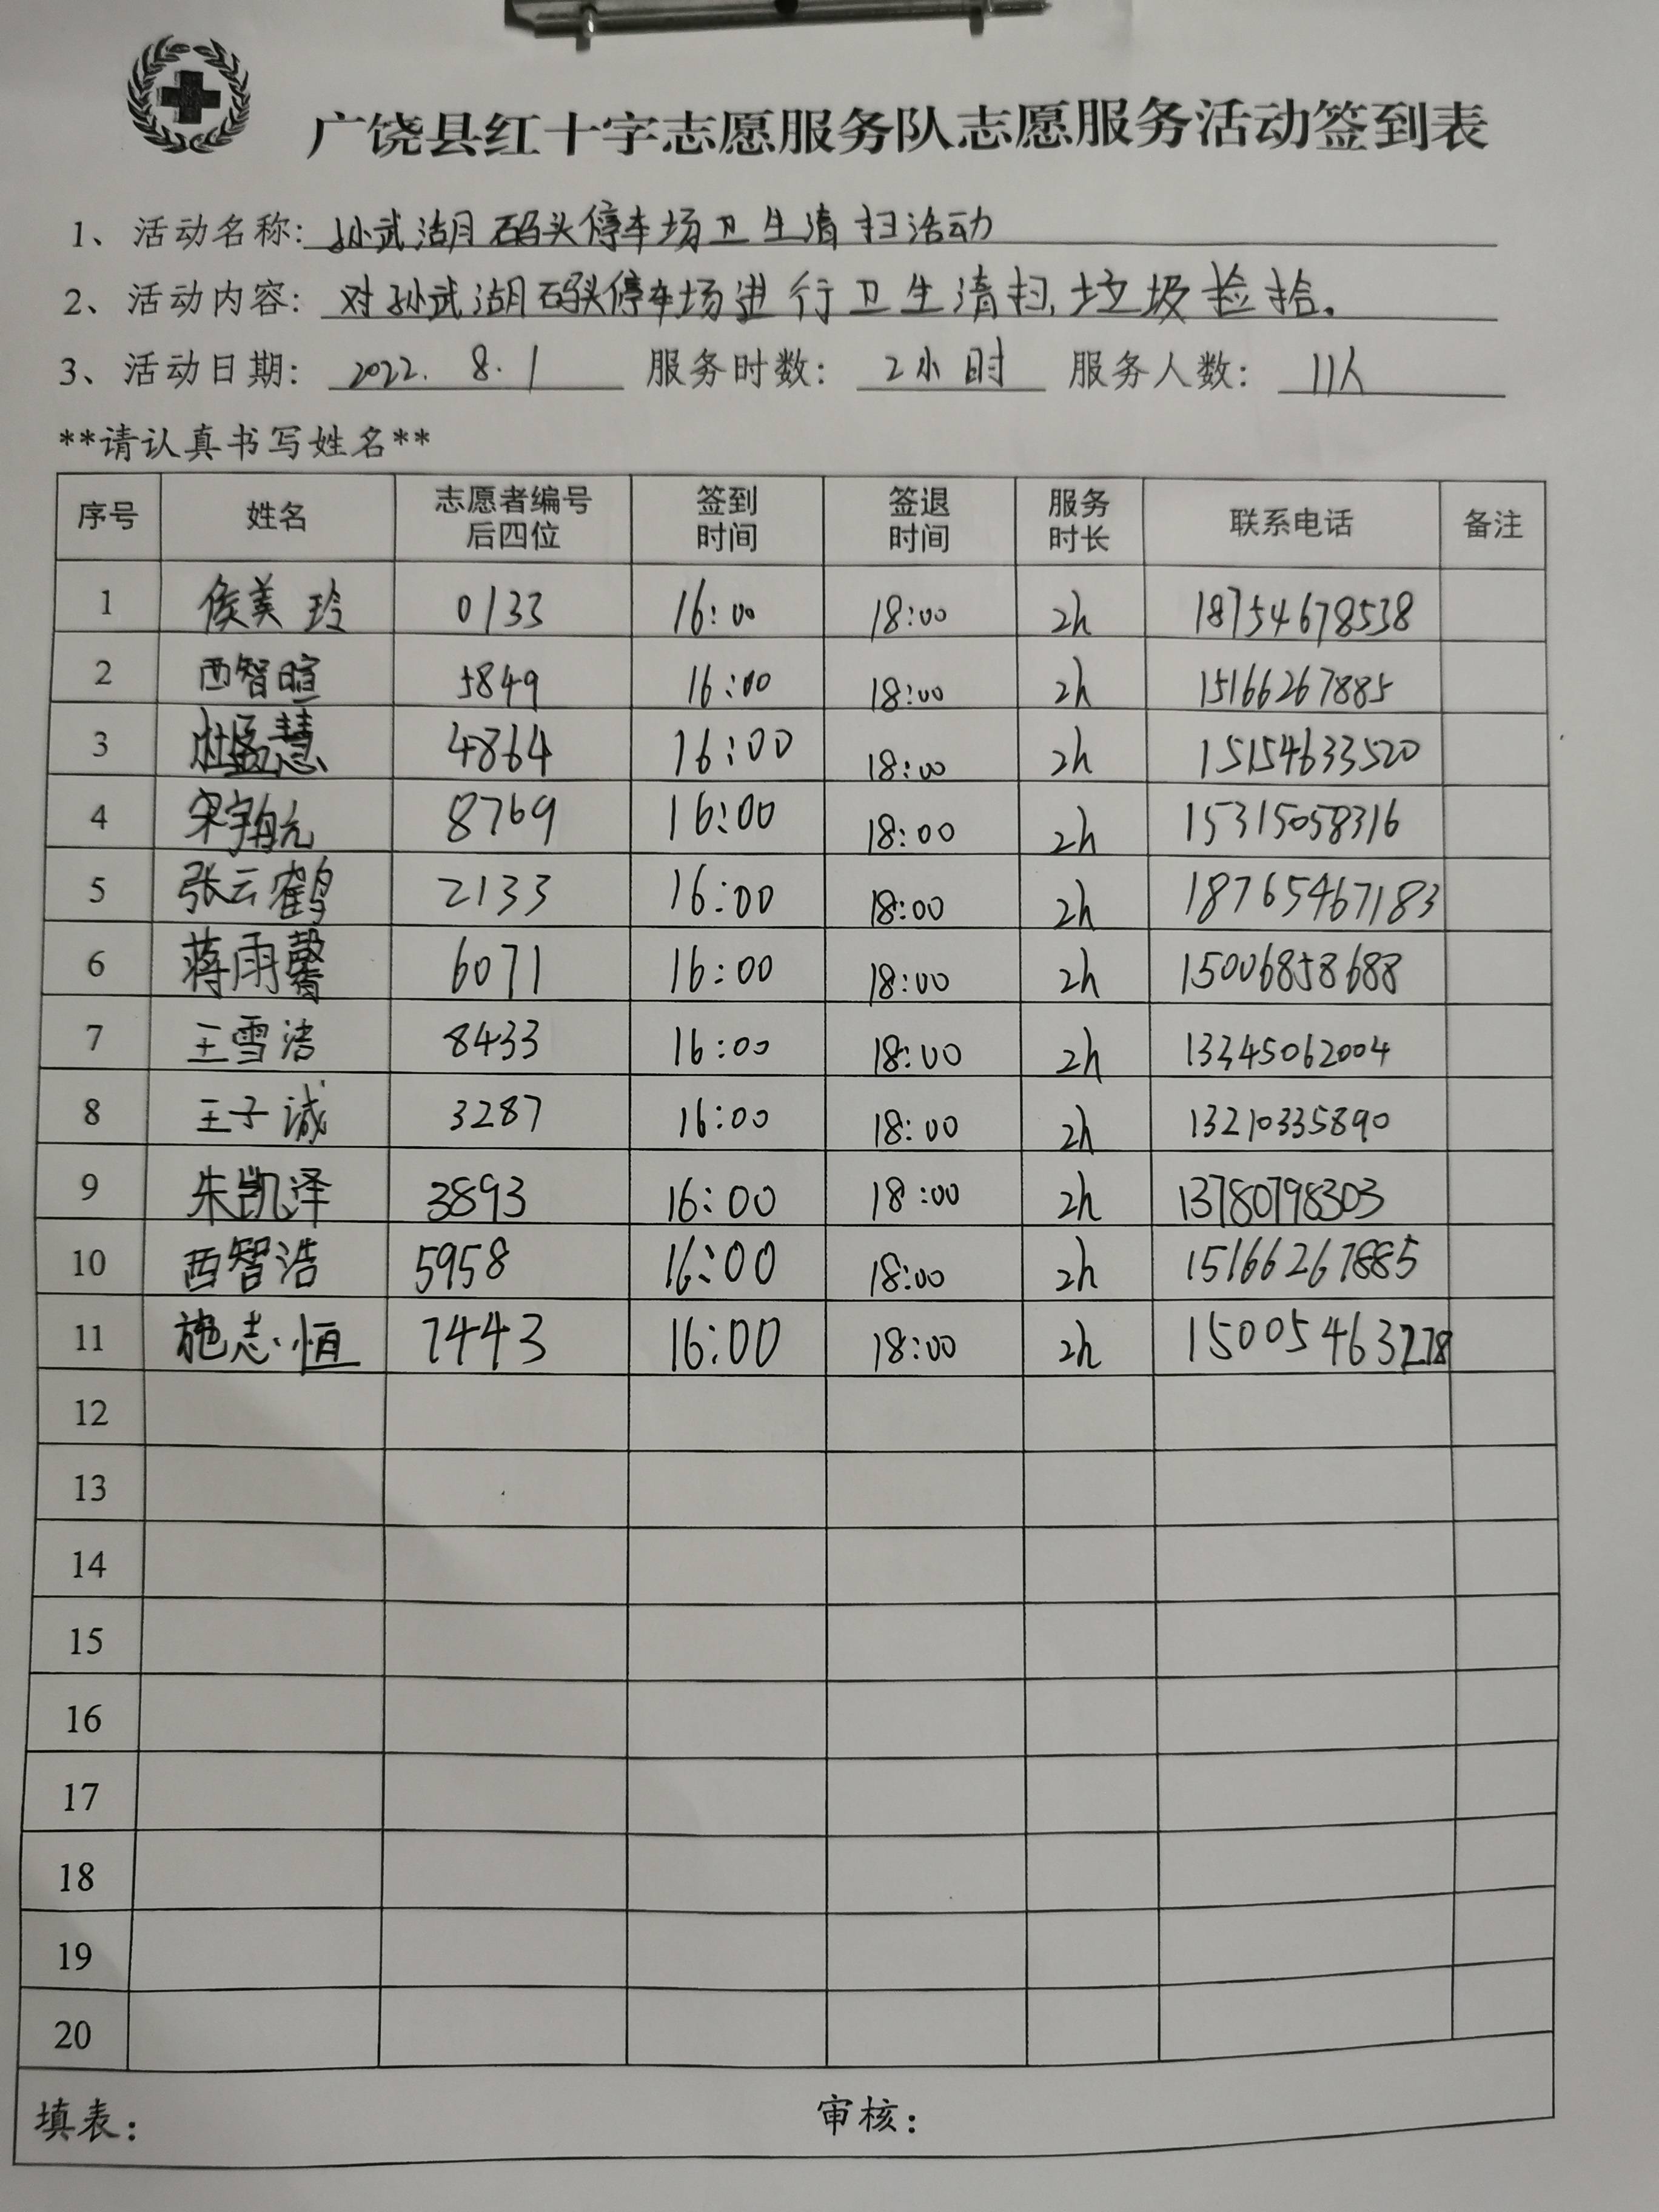 广饶县红十字志愿服务队志愿服务活动签到表
1、活动名称：孙武湖码头停车场卫生清扫活动
2、活动内容：对孙武湖码头停车场进行卫生清扫、垃圾捡拾。
3、活动日期：2022.8.1 服务时数：2小时 服务人数：11人
**请认真书写姓名**
序号 姓名 志愿者编号后四位 签到时间 签退时间 服务时长 联系电话 备注
1 侯美玲 0133 16:00 18:00 2h 18754678538
2 西智暄 5849 16:00 18:00 2h 15166267885
3 杜孟慧 4864 16:00 18:00 2h 15154633520
4 宋宇航 8769 16:00 18:00 2h 15315058316
5 张云鹤 2133 16:00 18:00 2h 18765467183
6 蒋雨馨 6071 16:00 18:00 2h 15006858688
7 王雪洁 8433 16:00 18:00 2h 13345062004
8 王子诚 3287 16:00 18:00 2h 13210335890
9 朱凯泽 3893 16:00 18:00 2h 13780798303
10 西智浩 5958 16:00 18:00 2h 15166267885
11 施志恒 7443 16:00 18:00 2h 15005463278
12
13
14
15
16
17
18
19
20
填表： 审核：